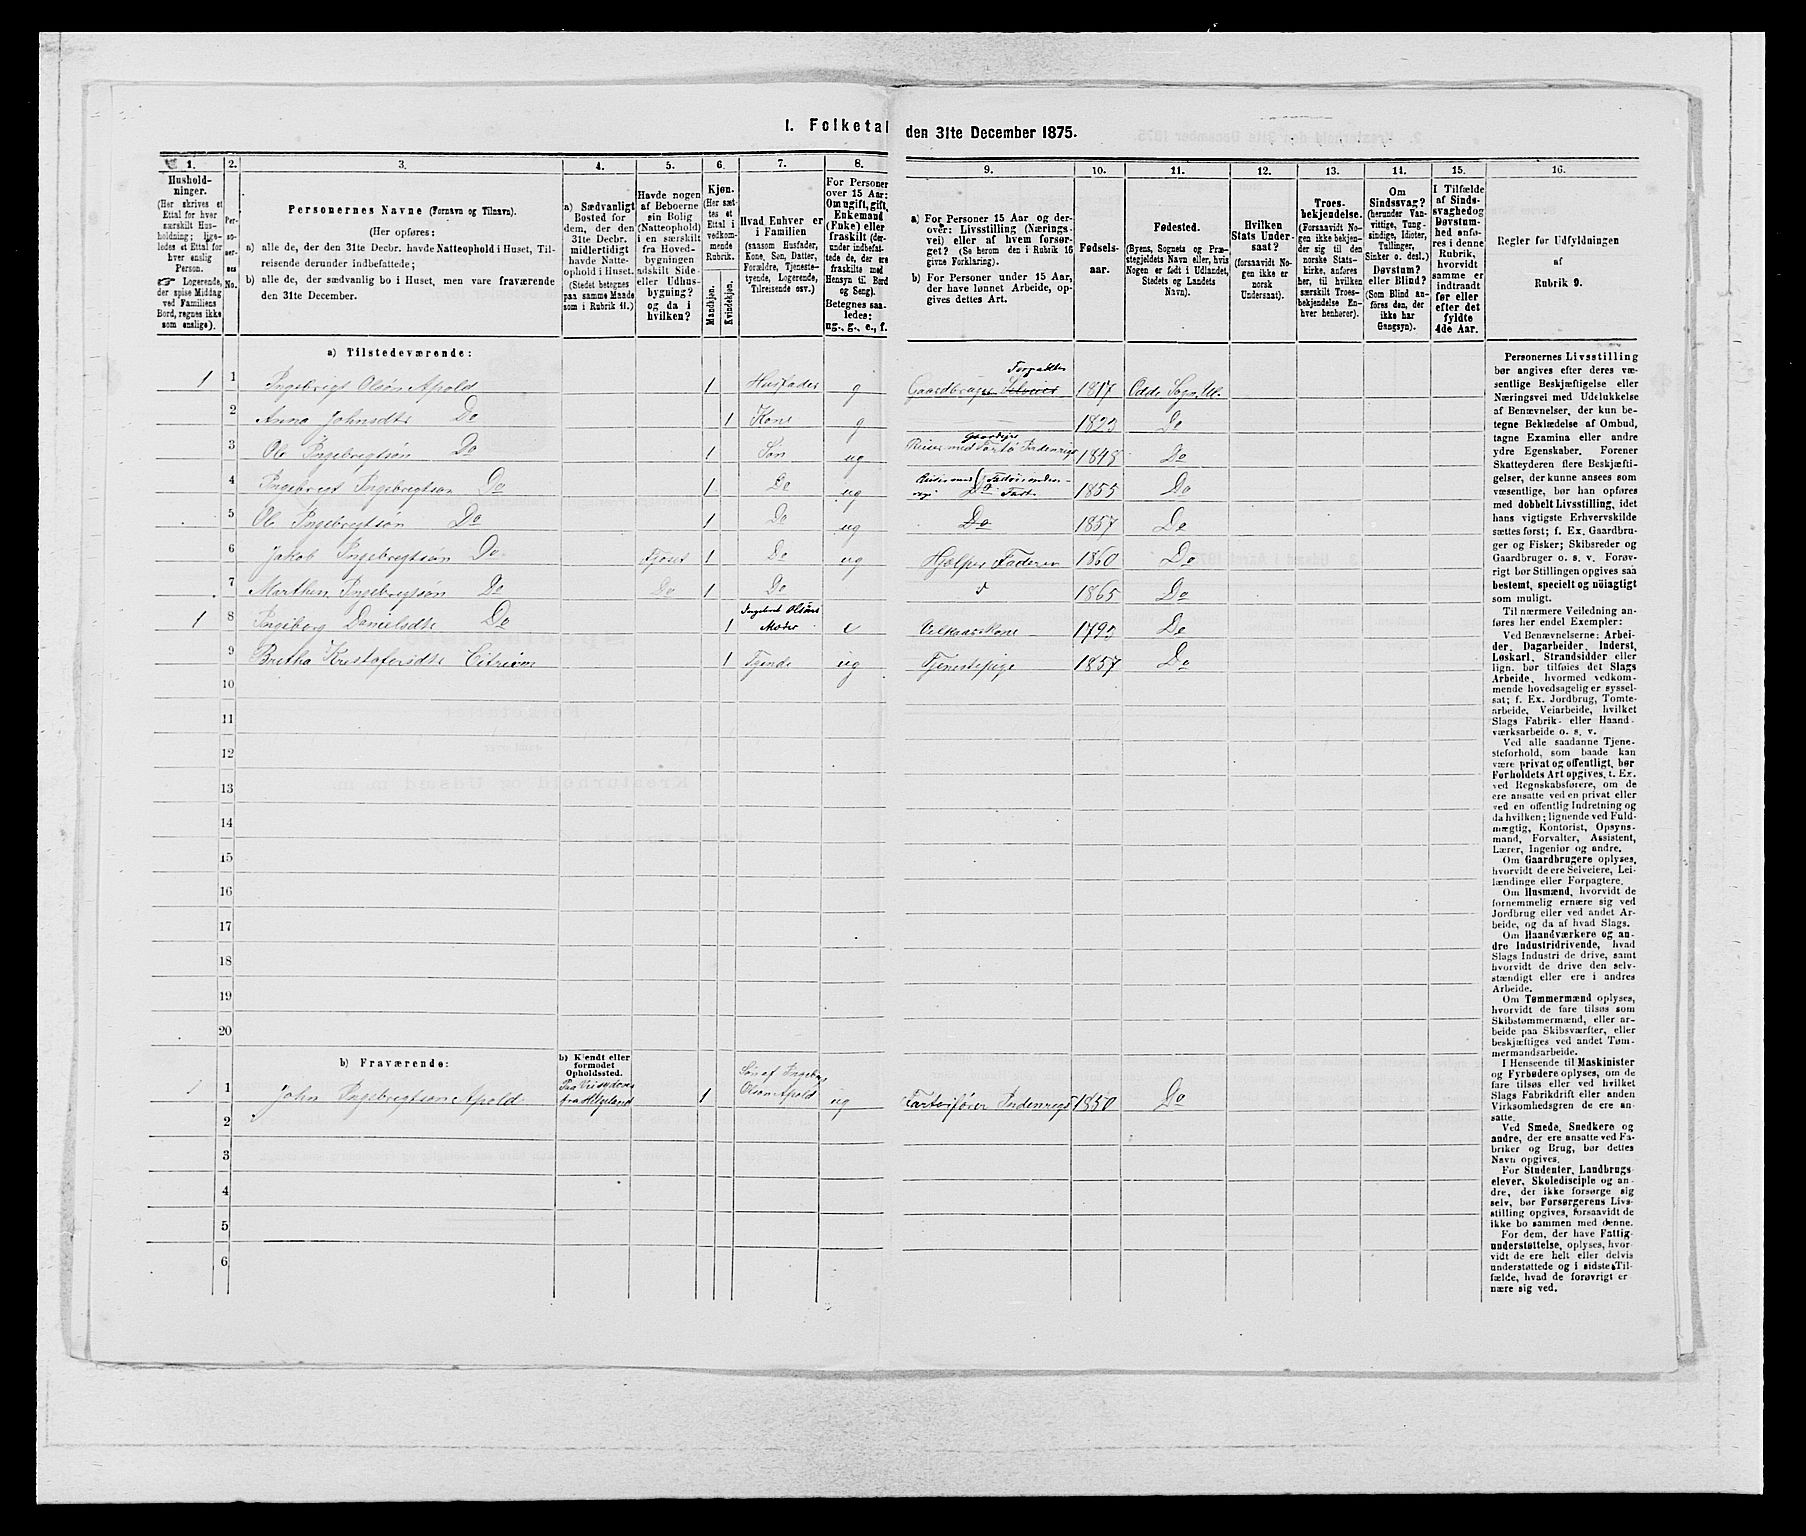 I. Folketal den 31te December 1875.
1. 2. 3. 4. 5. 6. 7. 8. 9. 10. 11. 12. 13. 14. 15. 16.
Hushold-
ninger.
(Her skrives et
Ettal for hver
særskilt Hus-
holdning; lige-
ledes et Ettal for
hver enslig
Person.
☞ Logerende,
der spise Middag
ved Familiens
Bord, regnes ikke
som enslige).
Per-
so-
ner-
nes
No.
Personernes Navne (Fornavn og Tilnavn).
(Her opføres:
a) alle de, der den 31te Decbr. havde Natteophold i Huset, Til-
reisende derunder indbefattede;
b) alle de, der sædvanlig bo i Huset, men vare fraværende
den 31te December.
a) Sædvanligt
Bosted for
dem, der den
31te Decbr.
midlertidigt
havde Natte-
ophold i Huset.
(Stedet betegnes
paa samme Maade
som i Rubrik 11.)
Havde nogen
af Beboerne
sin Bolig
(Natteophold)
i en særskilt
fra Hoved-
bygningen
adskilt Side-
eller Udhus-
bygning?
og da i
hvilken?
Kjøn.
(Her sæt-
tes et
Ettal i
vedkom-
mende
Rubrik.
Mandkjøn.
Kvindekjøn.
Hvad Enhver er
i Familien
(saasom Husfader,
Kone, Søn, Datter,
Forældre, Tjeneste-
tyende, Logerende,
Tilreisende osv.)
For Personer
over 15 Aar:
Om ugift, gift,
Enkemand
(Enke) eller
fraskilt (der-
under indbefat-
tede de, der ere
fraskilte med
Hensyn til Bord
og Seng).
Betegnes saa-
ledes:
ug., g., e., f.
a) For Personer 15 Aar og der-
over: Livsstilling (Nærings-
vei) eller af hvem forsør-
get? (Se herom den i Rubrik 16
givne Forklaring).
b) For Personer under 15 Aar,
der have lønnet Arbeide, op-
gives dettes Art.
Fødsels-
aar.
Fødested.
(Byens, Sognets og Præ-
stegjeldets Navn eller, hvis
Nogen er født i Udlandet,
Stedets og Landets
Navn).
Hvilken
Stats Under-
saat?
(forsaavidt No-
gen ikke er
norsk
Undersaat).
Troes-
bekjendelse.
(Forsaavidt No-
gen ikke bekjen-
der sig til den
norske Stats-
kirke, anføres
her, til hvilken
særskilt Troes-
bekjendelse En-
hver henhører).
Om
Sindssvag?
(herunder Van-
vittige, Tung-
sindige, Idioter,
Tullinger,
Sinker o. desl.)
Døvstum?
eller Blind?
(Som Blind an-
føres den, der
ikke har
Gangsyn).
I Tilfælde
af Sinds-
svaghed og
Døvstum-
hed anfø-
res i denne
Rubrik,
hvorvidt
samme er
indtraadt
før eller
efter det
fyldte
4de Aar.
Regler for Udfyldningen
af
Rubrik 9.
a) Tilstedeværende:
1 1 Ingebrigt Olsøn Apold 1 Husfader g Gaardbruger Selveier Forpakter 1817 Odde Sogn, Ul.
2 Anna Johnsdtr Do 1 Kone g 1823 Do
3 Ole Ingebrigtsøn Do 1 Søn ug 1845 Do
4 Ingebrigt Ingebrigtsøn Do 1 Do ug 1855 Do
5 Ole Ingebrigtsøn Do 1 Do ug Do 1857 Do
6 Jakob Ingebrigtsøn Do Fjøset 1 Do ug Hjælper Faderen 1860 Do
7 Marthin Ingebrigtsøn Do Do 1 Do 1865 Do
1 8 Ingeborg Danielsdtr Do 1 Ingebret Olsøns Moder e 1793 Do
9 Bretha Kristofersdtr 1 Tjende ug Tjenestepige 1857 Do
10
11
12
13
14
15
16
17
18
19
20
b) Fraværende:
b) Kjendt eller
formodet
Opholdssted.
1 1 John Ingebrigtsøn Apold fra Helgeland 1 Søn af Ingebr. Olsøn Apold ug Indenrigs 1850 Do
2
3
4
5
6
Personernes Livsstilling
bør angives efter deres væ-
sentlige Beskjæftigelse eller
Næringsvei med Udelukkelse
af Benævnelser, der kun be-
tegne Beklædelse af Ombud,
tagne Examina eller andre
ydre Egenskaber. Forener
Skatteyderen flere Beskjæfti-
gelser, der kunne ansees som
væsentlige, bør han opføres
med dobbelt Livsstilling, idet
hans vigtigste Erhvervskilde
sættes først; f. Ex. Gaardbru-
ger og Fisker; Skibsreder og
Gaardbruger o. s. v. Forøv-
rigt bør Stillingen opgives saa
bestemt, specielt og nøiagtigt
som muligt.
Til nærmere Veiledning an-
føres her endel Exempler:
Ved Benævnelserne: Arbei-
der, Dagarbeider, Inderst,
Løskarl, Strandsidder eller
lign. bør tilføies det Slags
Arbeide, hvormed vedkom-
mende hovedsagelig er syssel-
sat; f. Ex. Jordbrug, Tomte-
arbeide, Veiarbeide, hvilket
Slags Fabrik- eller Haand-
værksarbeide o. s. v.
Ved alle saadanne Tjene-
steforhold, som baade kan
være privat og offentligt, bør
Forholdets Art opgives, t. Ex.
ved Regnskabsførere, om de
ere ansatte ved en privat eller
ved en offentlig Indretning og
da hvilken; lignende ved Fuld-
mægtig, Kontorist, Opsyns-
mand, Forvalter, Assistent,
Lærer, Ingeniør og andre.
Om Gaardbrugere oplyses,
hvorvidt de ere Selveiere, Lei-
lændinge eller Forpagtere.
Om Husmænd, hvorvidt de
fornemmelig ernære sig ved
Jordbrug eller ved andet Ar-
beide, og da af hvad Slags.
Om Haandværkere og an-
dre Industridrivende, hvad
Slags Industri de drive, samt
hvorvidt de drive den selv-
stændigt eller ere i andres
Arbeide.
Om Tømmermænd oplyses,
hvorvidt de fare tilsøs som
Skibstømmermænd, eller ar-
beide paa Skibsværfter, eller
beskjæftiges ved andet Tøm-
mermandsarbeide.
I Henseende til Maskinister
og Fyrbødere oplyses, om de
fare tilsøs eller ved hvilket
Slags Fabrikdrift eller anden
Virksomhedsgren de ere an-
satte.
Ved Smede, Snedkere og
andre, der ere ansatte ved Fa-
briker og Brug, bør dettes
Navn opgives.
For Studenter, Landbrugs-
elever, Skoledisciple og an-
dre, der ikke forsørge sig
selv, bør Forsørgerens Livs-
stilling opgives, forsaavidt de
ikke bo sammen med denne.
For dem, der have Fattig-
understøttelse, oplyses, hvor-
vidt de ere helt eller delvis
understøttede og i sidste Til-
fælde, hvad de forøvrigt er-
nære sig ved.